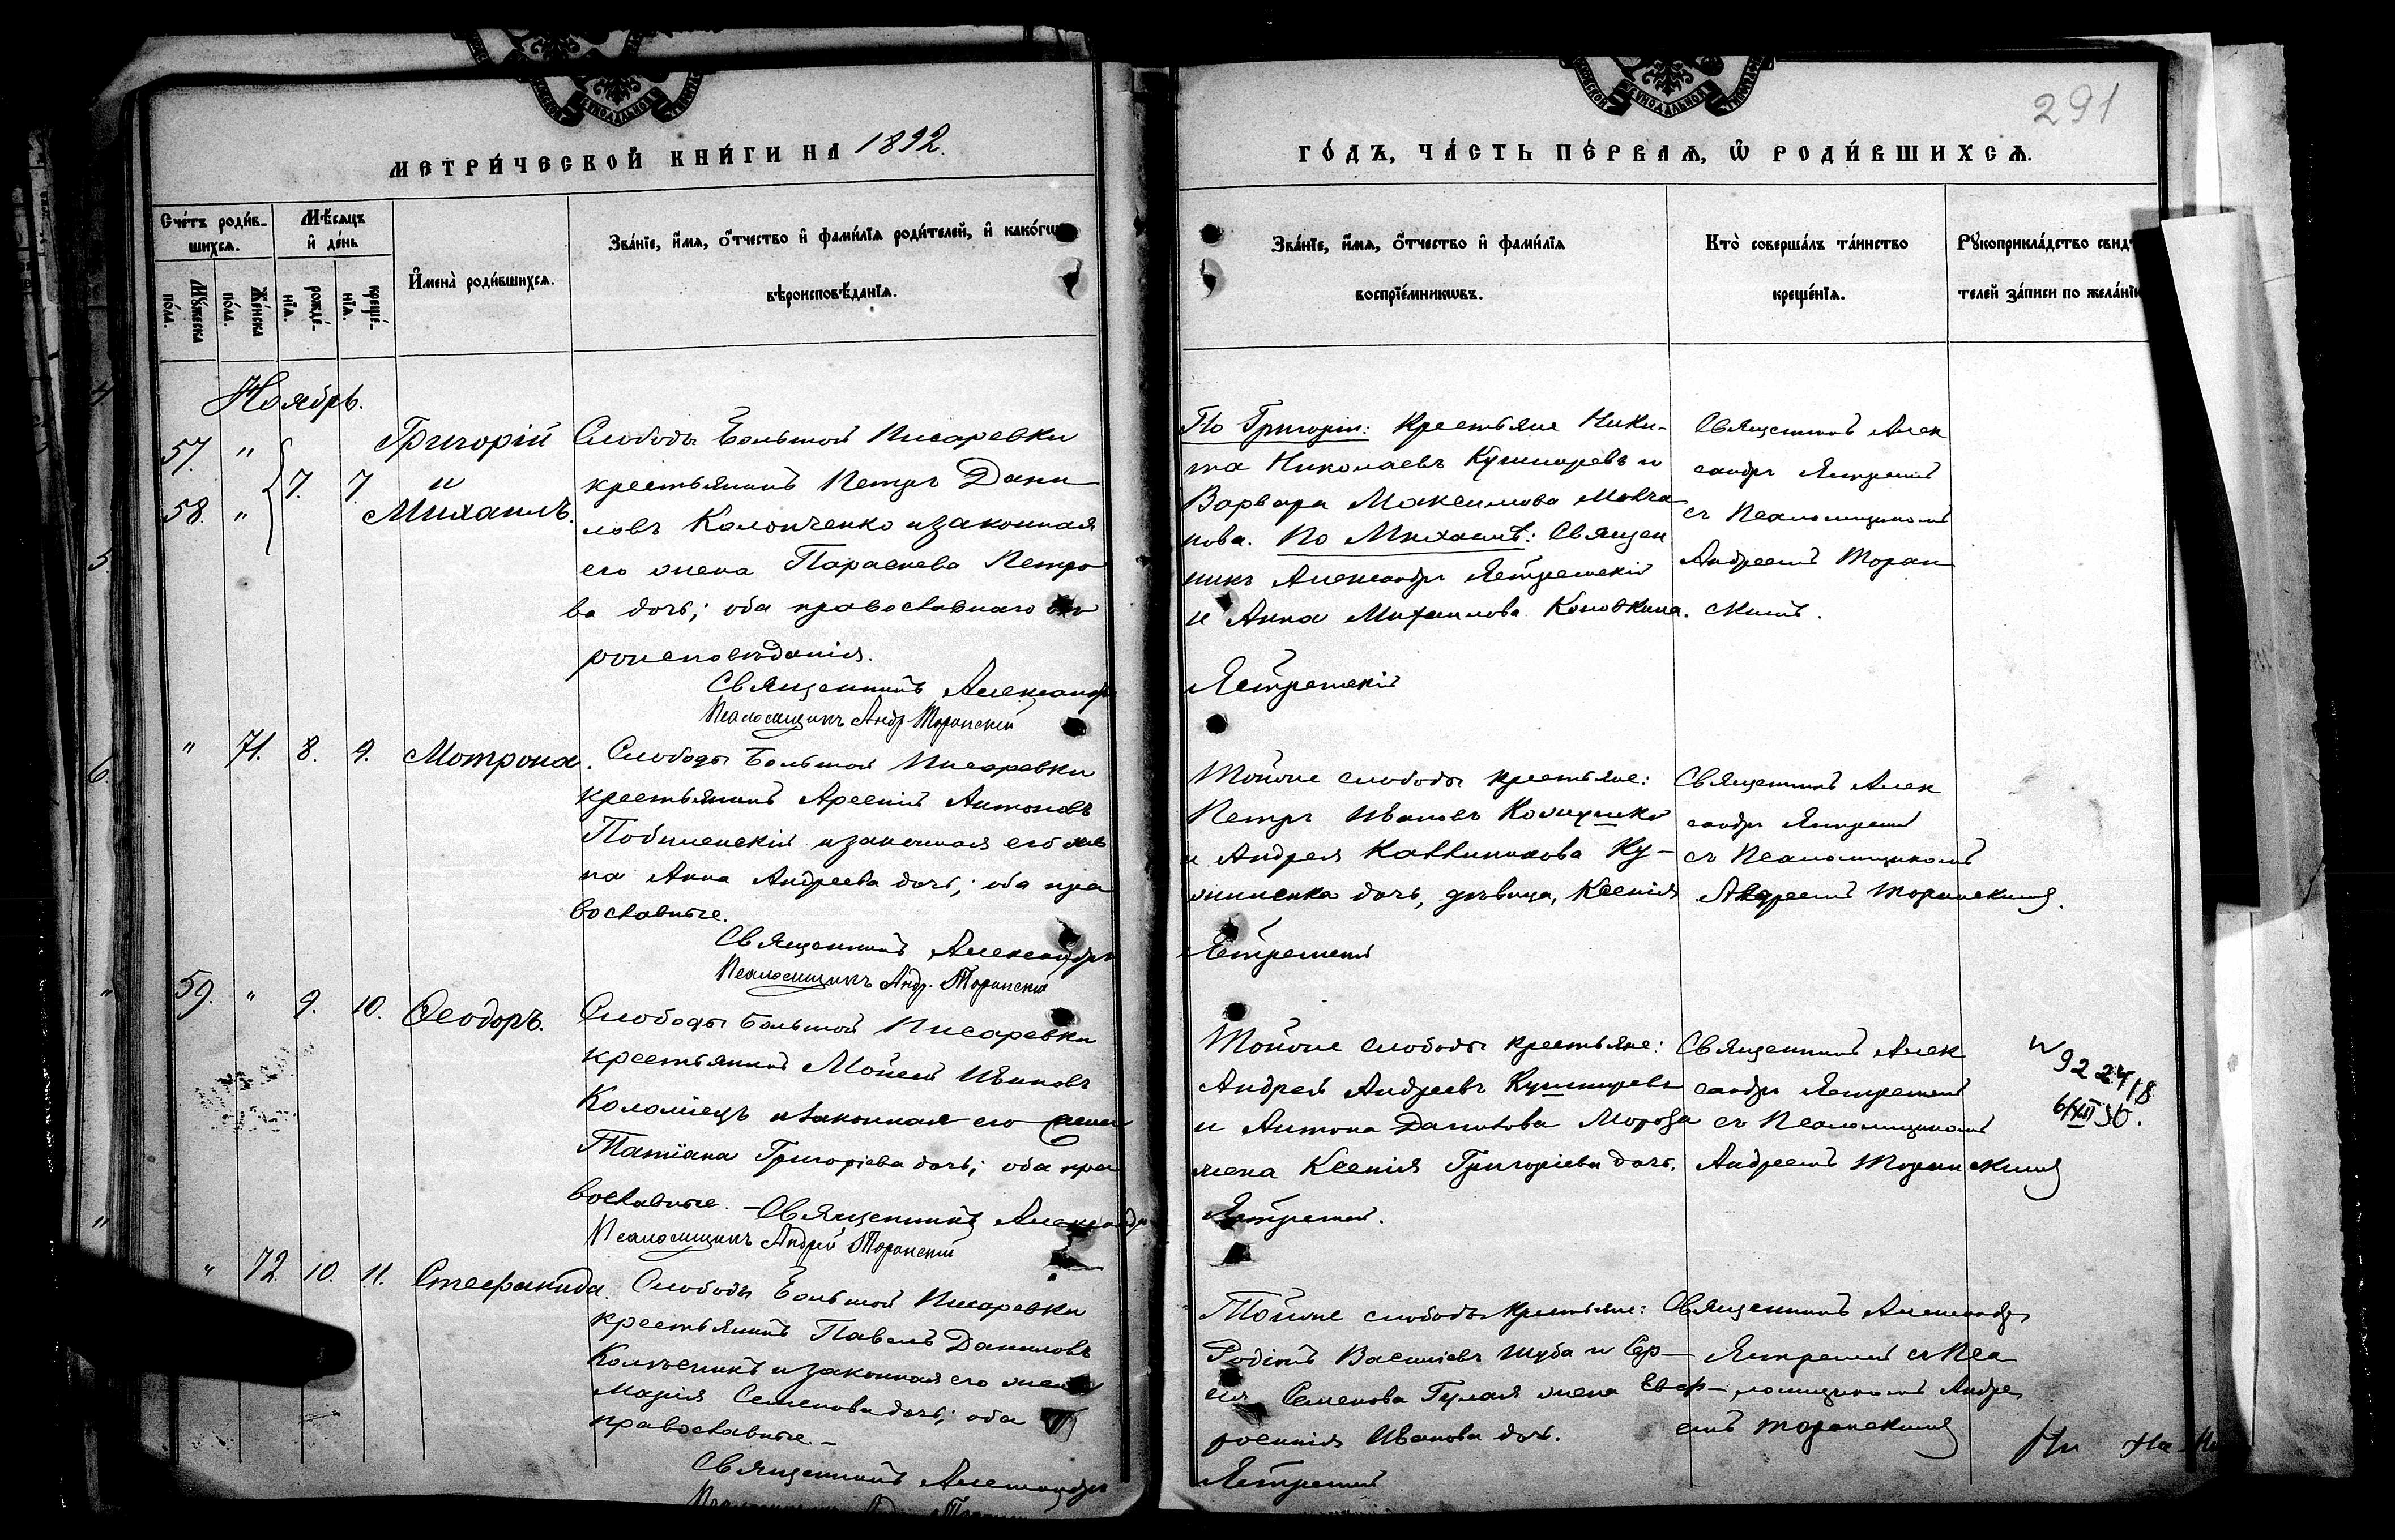 291
МЕТРИ́ЧЕСКОЙ КНИ́ГИ НА 1892.
ГО́ДЪ, ЧА́СТЬ ПЕ́РВАѦ, Ѿ РОДИ́ВШИХСѦ.
Сче́тъ роди́в-
шихсѧ.
Мѣ́сѧцъ
и҆ де́нь
Мꙋ́жеска
по́ла.
Же́нска
по́ла.
рожде́-
нїѧ.
креще́-
нїѧ.
И҆мена̀ роди́вшихсѧ.
Зва́нїе, и҆́мѧ, ѻ҆́тчество и҆ фами́лїѧ роди́телей, и҆ како́гѡ
вѣроисповѣ́данїѧ.
Зва́нїе, и҆́мѧ, ѻ҆́тчество и҆ фами́лїѧ
воспрїе́мникѡвъ.
Кто̀ соверша́лъ та́инство
креще́нїѧ.
Рꙋкоприкла́дство свидѣ
телей за́писи по жела́нїю
Ноябрь.
57. " 7. 7. Григорій
58. " Михаилъ.
Слободы Большой Писаревки
крестьянинъ Петръ Дани
ловъ Колонченко и законная
его жена Параскева Петро
ва дочь; оба православнаго вѣ
роисповѣданія.
Священникъ Александръ
Псаломщикъ Андр. Торанскій
По Григоріи: крестьяне Ники-
та Николаевъ Кушнаревъ и
Варвара Максимова Мовча
нова. По Михаилѣ: Священ
никъ Александръ Ястремскій
и Анна Михаилова Коновкина.
Ястремскій
Священникъ Алек
сандръ Ястремскій
съ Псаломщикомъ
Андреемъ Торан
скимъ.
" 71. 8. 9. Мотрона.
Слободы Большой Писаревки
крестьянинъ Арсеній Антоновъ
и законная его же
на Анна Андреева дочь; оба пра
вославные.
Священникъ Александръ
Псаломщикъ Андр. Торанскій
Тойже слободы крестьяне:
Петръ Ивановъ
и Андрея Ку-
дочь, дѣвица, Ксенія
Ястремскій
Священникъ Алек
сандръ Ястремскій
съ Псаломщикомъ
Андреемъ Торанскимъ.
59. " 9. 10. Ѳеодоръ.
Слободы Большой Писаревки
крестьянинъ Мойсей Ивановъ
Коломіецъ и законная его жена
Татіана Григоріева дочь; оба пра
вославные. – Священникъ Александръ
Псаломщикъ Андрей Торанскій
Тойже слободы крестьяне:
Андрей Андреевъ Кушнаревъ
и Антона Данилова Мороза
жена Ксенія Григоріева дочь.
Ястремскій.
Священникъ Алек
сандръ Ястремскій
съ Псаломщикомъ
Андреемъ Торанскимъ
" 72. 10. 11. Стефанида.
Слободы Большой Писаревки
крестьянинъ Павелъ Даниловъ
Колѣсникъ и законная его жена
Марія Семенова дочь; оба
православные. –
Священникъ Александръ
Тойже слободы крестьяне:
Родіонъ Василіевъ Шуба и
Семенова Гулая жена Евф-
росинія Иванова дочь.
Ястремскій
Священникъ Александръ
Ястремскій съ Пса
ломщикомъ Андре
емъ Торанскимъ